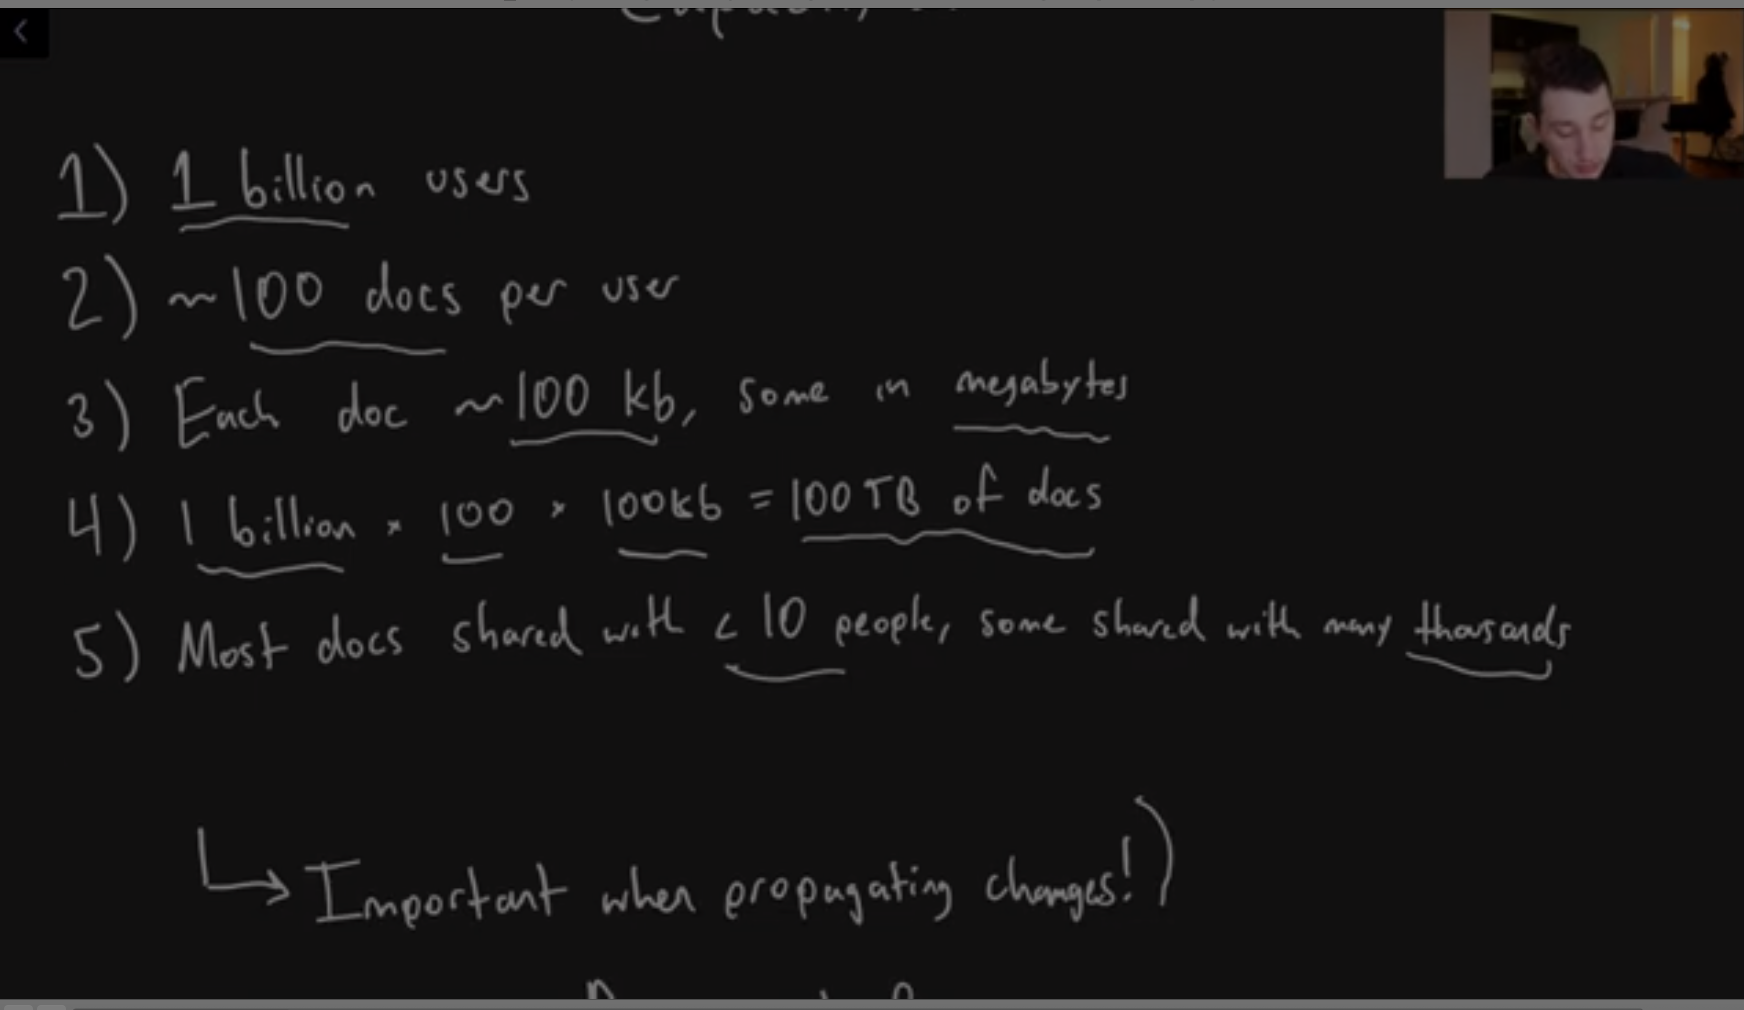 1) 1 billion users
2) ~100 docs per user
3) Each doc ~100 kb, some in megabytes
4) 1 billion * 100 * 100kb = 100TB of docs
5) Most docs shared with < 10 people, some shared with many thousands
↳ Important when propagating changes!)